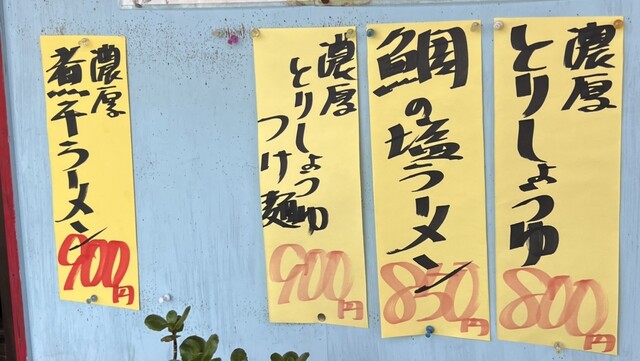 濃厚
とりしょうゆ
800円
鯛の塩ラーメン
850円
濃厚
とりしょうゆ
つけ麺
900円
濃厚
煮干ラーメン
900円